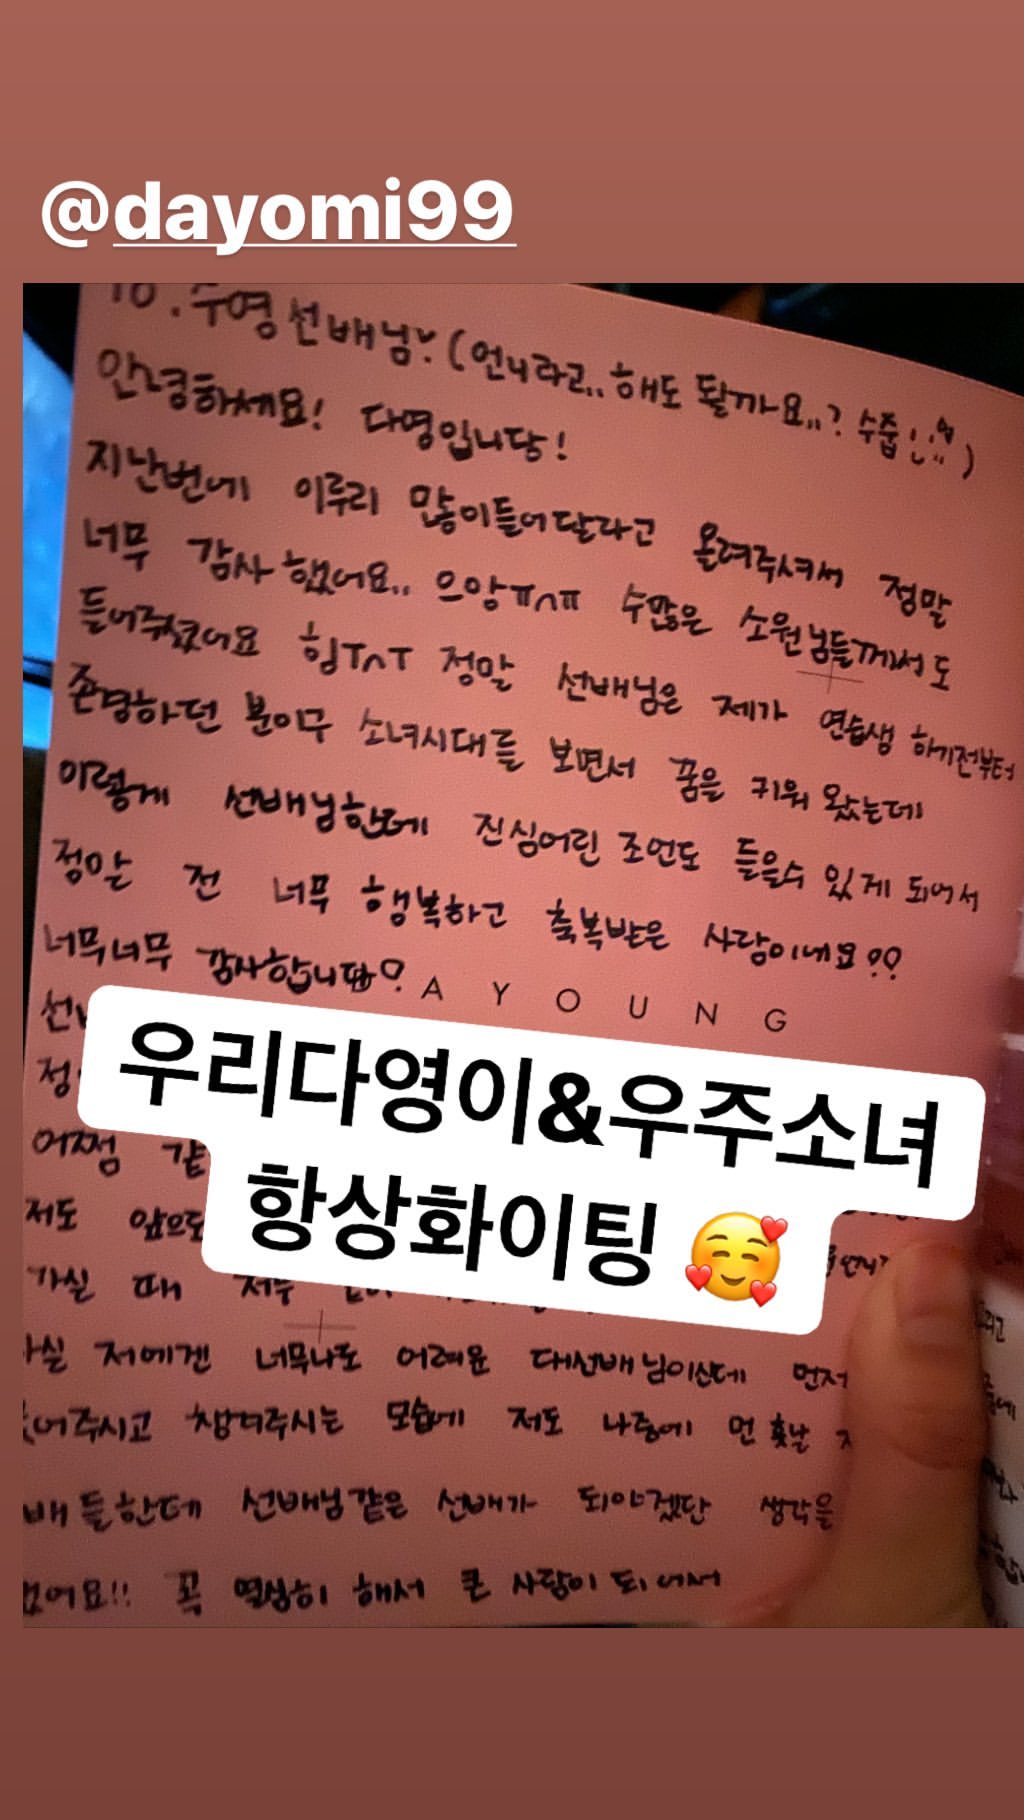 @dayomi99
To. 수영선배님♡ (언니라고.. 해도 될까요..? 수줍
안녕하세요! 다영입니당!
지난번에 이루리 많이들어달라고 올려주셔서 정말
너무 감사했어요.. 으앙ㅠㅅㅠ 수많은 소원님들께서도
들어주셨어요 힝ㅜㅅㅜ 정말 선배님은 제가 연습생 하기전부터
존경하던 분이구 소녀시대를 보면서 꿈을 키워 왔는데
이렇게 선배님한테 진심어린 조언도 들을수 있게 되어서
정말 전 너무 행복하고 축복받은 사람이네요??
너무너무 감사합니다♡
A Y O U N G
우리다영이&우주소녀
항상화이팅 🥰
어쩜
저도 앞으로
가실 때 저두
저에겐 너무나도 어려운 대선배님이신데 먼저
어주시고 챙겨주시는 모습에 저도 나중에 먼 훗날
배들한테 선배님같은 선배가 되야겠단 생각을
했어요!! 꼭 열심히 해서 큰 사람이 되어서